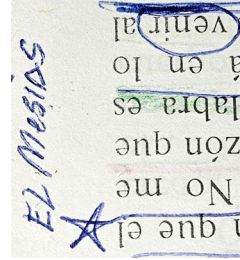 EL MesiAS
n que el
No me
zón que
labra es
á en lo
venir al